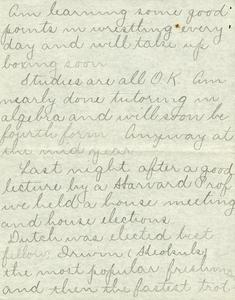 Am learning some good
points in wrestling every
day and will take up
boxing soon.
Studies are all O.K. Am
nearly done tutoring in
algebra and will soon be
fourth form. Anyway at
the mid year.
Last night after a good
lecture by a Harvard Prof
we held a house meeting
and house elections.
Dutch was elected best
fellow.
the most popular freshman
and then the fastest trot